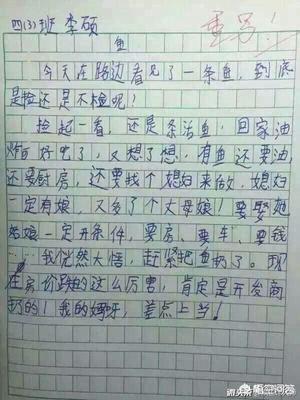 四(3)班 李硕
重写!
鱼
今天在路边看见了一条鱼,到底
是捡还是不捡呢!
捡起一看,还是条活鱼,回家油
炸了好吧了,又想了想,有鱼还要油,
还要厨房,还要找个媳妇来做,媳妇
一定有娘,又多了个丈母娘!要娶她
姑娘一定开条件,要房、要车、要钱
……我恍然大悟,赶紧把鱼扔了。现
在房价跌的这么厉害,肯定是开发商
扔的!我的妈呀,差点上当!